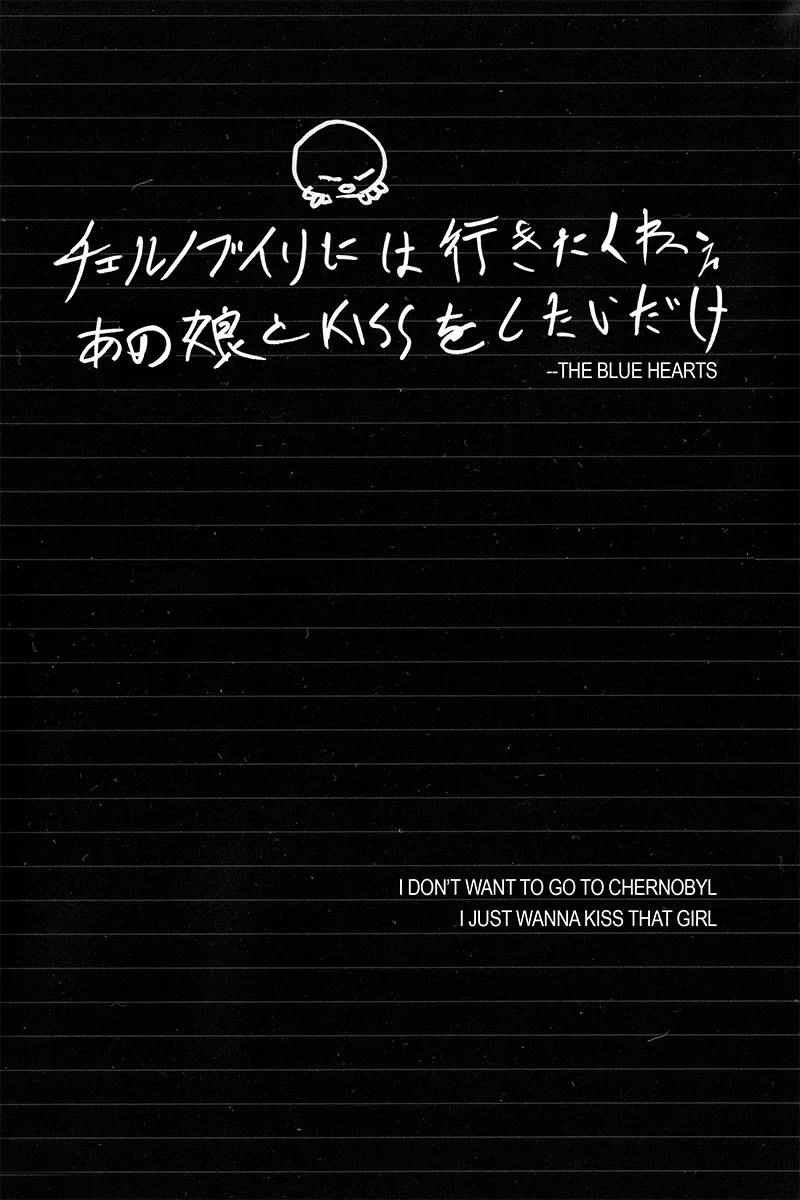 チェルノブイリには行きたくねえ
あの娘とKISSをしたいだけ
--THE BLUE HEARTS
I DON'T WANT TO GO TO CHERNOBYL
I JUST WANNA KISS THAT GIRL